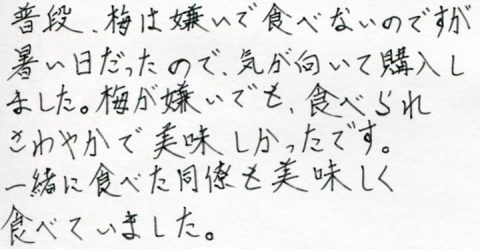 普段、梅は嫌いで食べないのですが
暑い日だったので、気が向いて購入し
ました。梅が嫌いでも、食べられ
さわやかで美味しかったです。
一緒に食べた同僚も美味しく
食べていました。